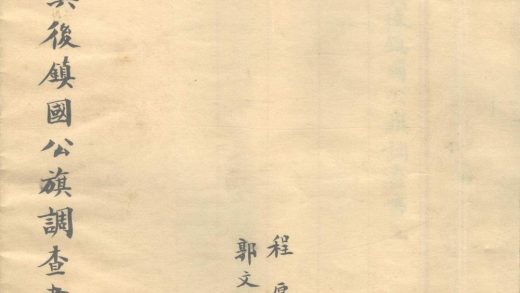 後鎮國公旗調查
程
郭文